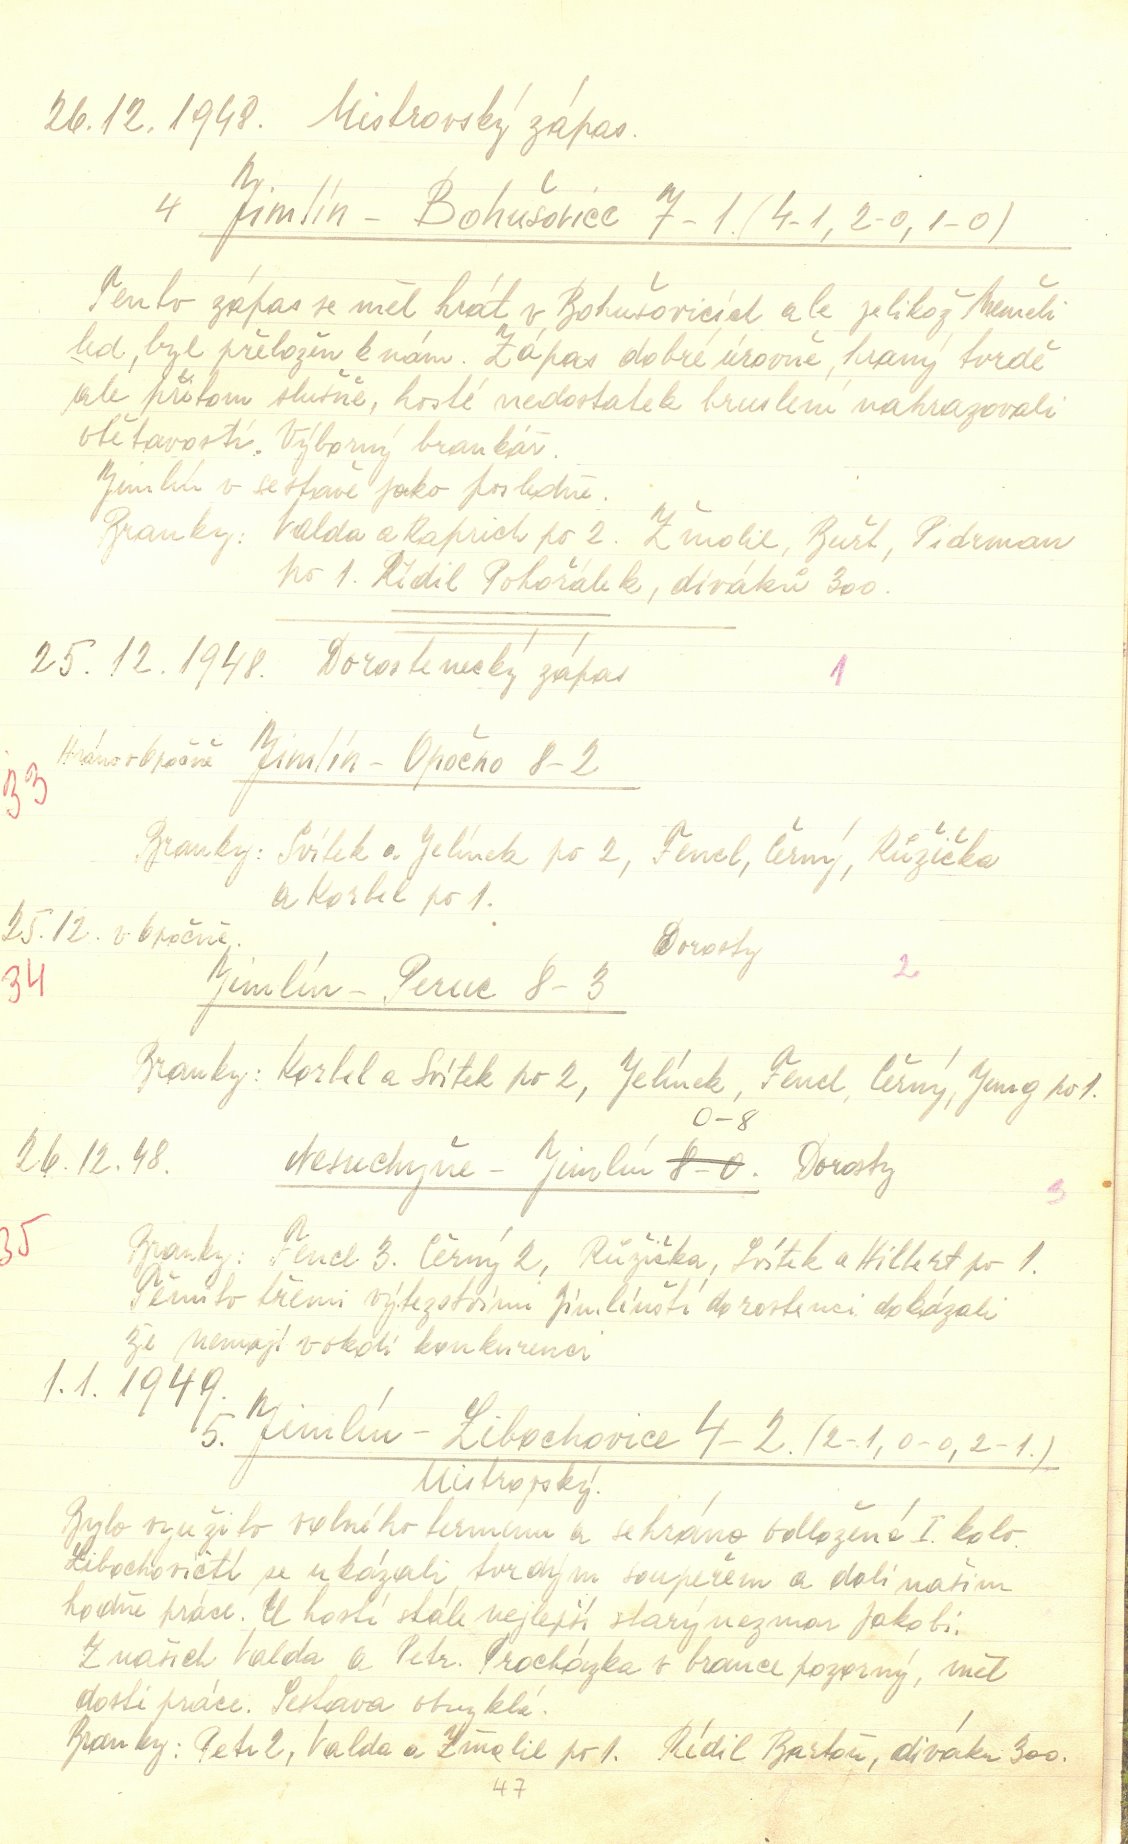 26.12.1948. Mistrovský zápas.
4 Jimlín - Bohušovice 7-1. (4-1, 2-0, 1-0)
Tento zápas se měl hrát v Bohušovicích ale jelikož neměli
led, byl přeložen k nám. Zápas dobré úrovně, hraný tvrdě
ale přitom slušně, hosté nedostatek bruslení nahrazovali
Výborný brankář.
Jimlín v sestavě jako posledně.
Branky: Valda a Kaprich po 2. Žmolil, Buřt, Pidrman
po 1. Řídil Pohořálek, diváků 300.
25. 12. 1948. Dorostenecký zápas
1
Hráno v Opočně Jimlín - Opočno 8-2
33
Branky: Svítek a Jelínek po 2, Fencl, Černý, Růžička
a Korbel po 1.
25.12. v Opočně.
Dorosty
34 Jimlín - Peruc 8-3
2
Branky: Korbel a Svítek po 2, Jelínek, Fencl, Černý, Jung po 1.
0-8
26.12.48. Nesuchyňe - Jimlín 8-0. Dorosty
3
35
Branky: Fencl 3. Černý 2, Růžička, Svítek a Hilbert po 1.
Těmito třemi výtezstvími Jimlínští dorostenci dokázali
že nemají v okolí konkurenci
1.1. 1949.
5. Jimlín - Libochovice 4-2. (2-1, 0-0, 2-1.)
Mistrovský.
Bylo využito volného termínu a sehráno odložené I. kolo.
Libochovičtí se ukázali tvrdým soupeřem a dali našim
hodně práce. U hostí stále nejlepší starý nezmar Jakobi.
Z našich Valda a Petr. Procházka v brance pozorný, měl
dosti práce. Sestava obvyklá.
Branky: Petr 2, Valda a Žmolil po 1. Řídil Bartoň, diváků 300.
47